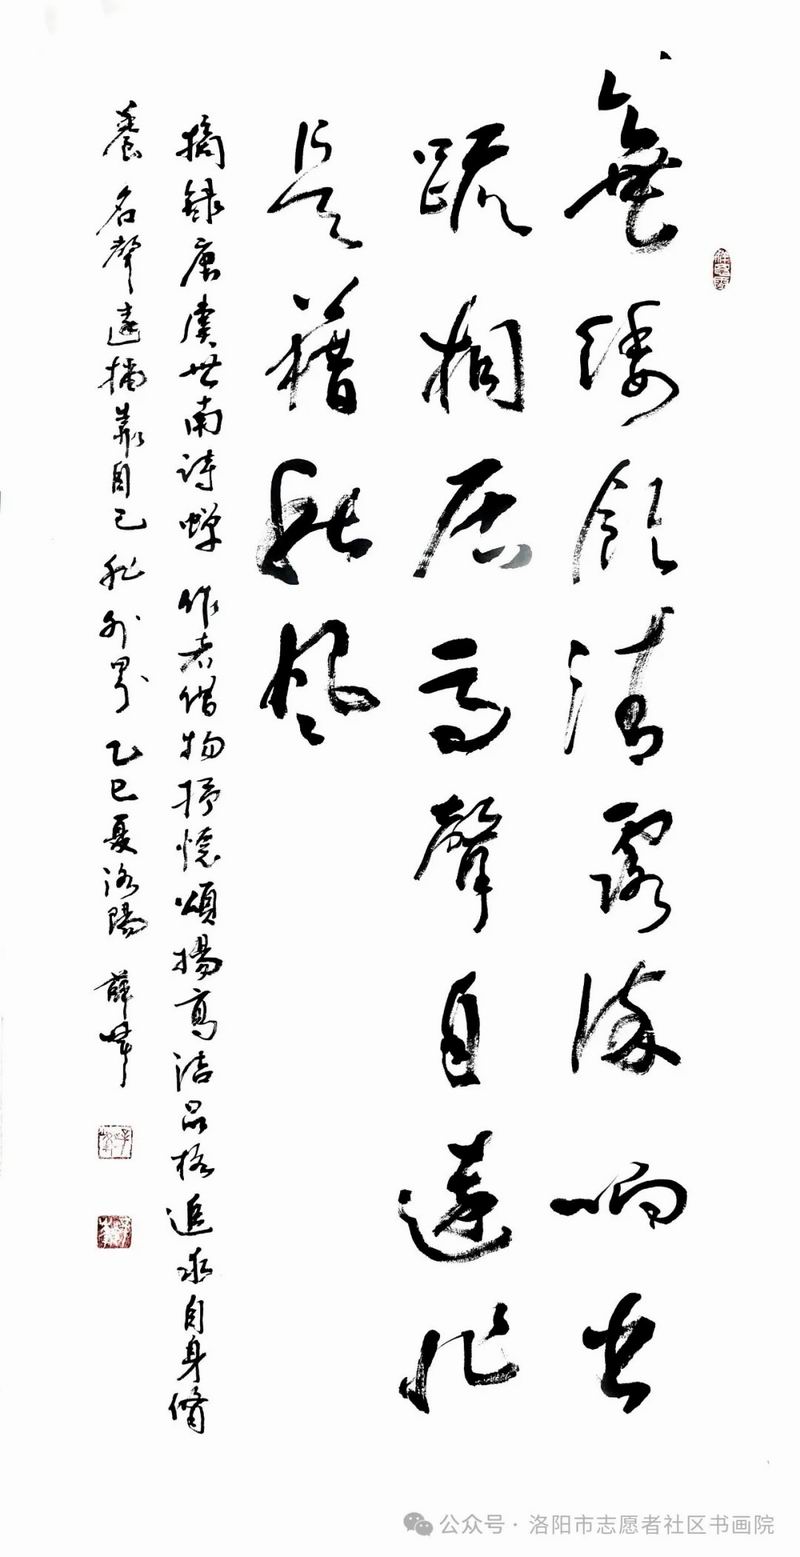 垂緌飲清露流响出
疏桐居高聲自遠非
是藉秋風
摘録唐虞世南詩蟬 作者借物抒懷頌揚高洁品格追求自身修
養 名聲遠播靠自己非外界 乙巳夏洛陽 薛
公众号·洛阳市志愿者社区书画院